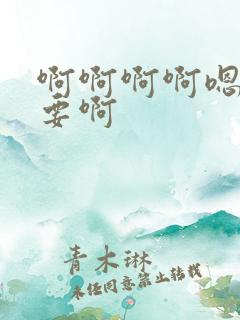 啊啊啊啊嗯
要啊
青木琳
未经同意禁止转载